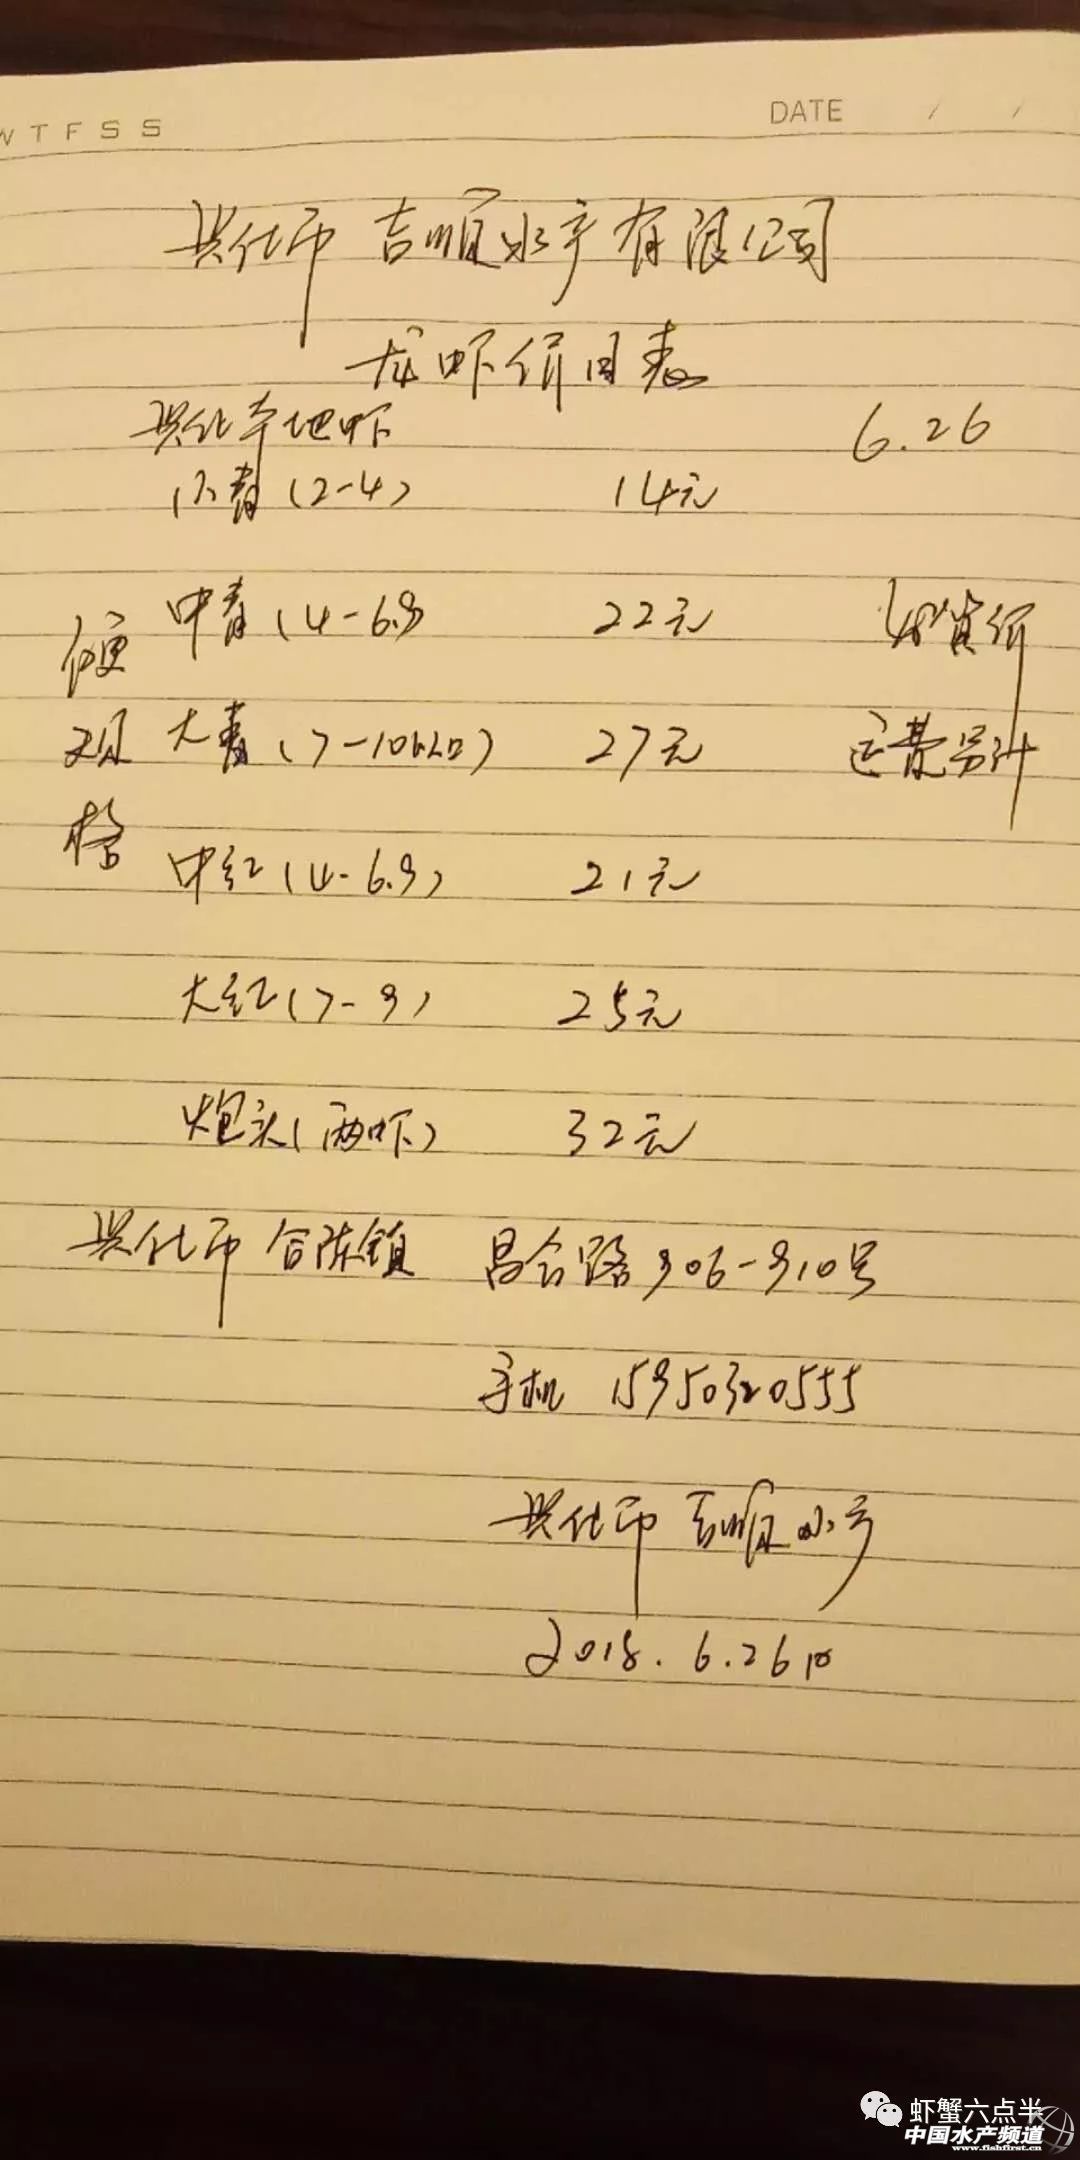 W T F S S
DATE / /
兴化市 吉顺水产有限公司
龙虾价目表
兴化本地虾 6.26
小青(2-4) 14元
中青(4-6.9 22元 拿货价
大青(7-10以上) 27元 运费另计
中红(4-6.9) 21元
大红(7-9) 25元
炮头(两虾) 32元
硬
规
格
兴化市 合陈镇 昌合路906-910号
手机 15950320555
兴化市 吉顺水产
2018.6.26日
虾蟹六点半
中国水产频道
www.fishfirst.cn